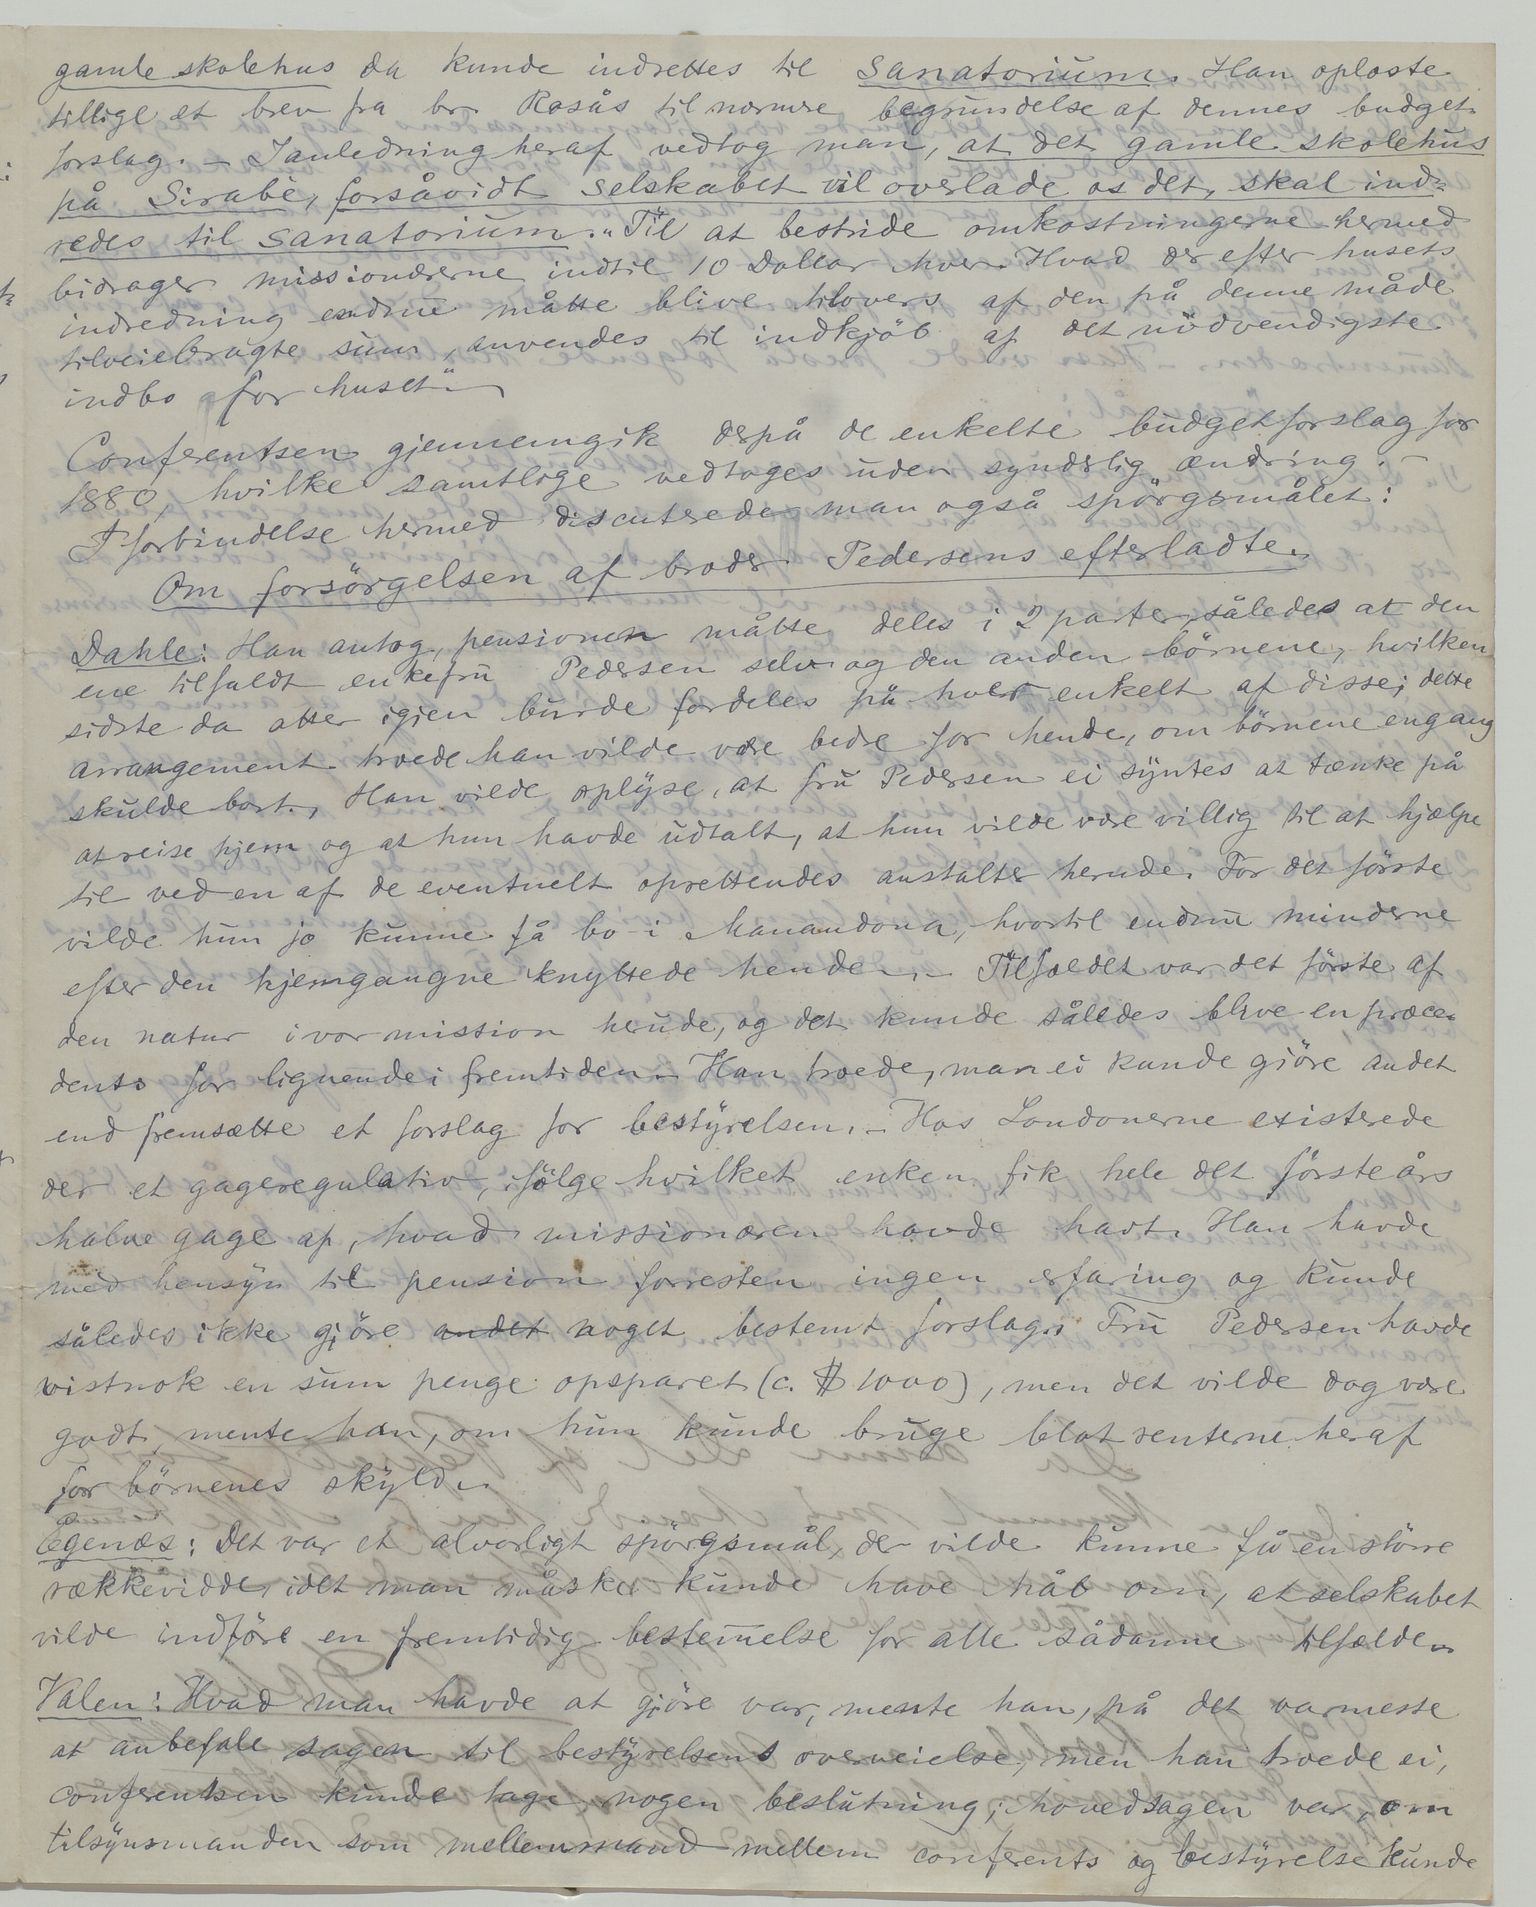 gamle skolehus da kunde indrettes til Sanatorium. Han oplæste
tillige et brev fra br. Rosås til nærmere begrundelse af dennes budget-
forslag. – I anledning heraf vedtog man, at det gamle skolehus
på Sirabè, forsåvidt selskabet vil overlade os det, skal ind-
redes til sanatorium. "Til at bestride omkostningerne hermed
bidrager missionærerne indtil 10 Dollar hver. Hvad der efter husets
indredning endnu måtte blive tilovers af den på denne måde
tilveiebragte sum, anvendes til indkjöb af det nödvendigste
indbo for huset".
Conferentsen gjennemgik derpå de enkelte budgetforslag for
1880, hvilke samtlige vedtoges uden synderlig ændring. –
I forbindelse hermed discuterede man også spörgsmålet:
Om forsörgelsen af broder Pedersens efterladte.
Dahle: Han antog, pensionen måtte deles i 2 parter, således at den
ene tilfaldt enkefru Pedersen selv og den anden börnene, hvilken
sidste da atter igjen burde fordeles på hver enkelt af disse; dette
arrangement troede han vilde være bedre for hende, om börnene engang
skulde bort. Han vilde oplyse, at fru Pedersen ei syntes at tænke på
at reise hjem og at hun havde udtalt, at hun vilde være villig til at hjælpe
til ved en af de eventuelt oprettendes anstalter herude. For det förste
vilde hun jo kunne få bo i Manandona, hvortil endnu minderne
efter den hjemgangne knyttede hende. – Tilfældet var det förste af
den natur i vor mission herude, og det kunde således blive en præce-
dents for lignende i fremtiden. – Han troede, man ei kunde gjöre andet
end fremsætte et forslag for bestyrelsen. – Hos Londonerne existerede
der et gageregulativ, ifölge hvilket enken fik hele det förste års
halve gage af, hvad missionæren havde havt. Han havde
med hensyn til pension forresten ingen erfaring og kunde
således ikke gjöre andet noget bestemt forslag. Fru Pedersen havde
vistnok en sum penge opsparet (c. $ 1000), men det vilde dog være
godt, mente han, om hun kunde bruge blot renterne heraf
for börnenes skyld.
Egenæs: Det var et alvorligt spörgsmål, der vilde kunne få en större
rækkevidde, idet man måske kunde have håb om, at selskabet
vilde indföre en fremtidig bestemelse for alle sådanne tilfælde.
Valen: Hvad man havde at gjöre var, mente han, på det varmeste
at anbefale sagen til bestyrelsens overveielse, men han troede ei,
conferentsen kunde tage nogen beslutning; hovedsagen var, om
tilsynsmanden som mellemmand mellem conferents og bestyrelse kunde